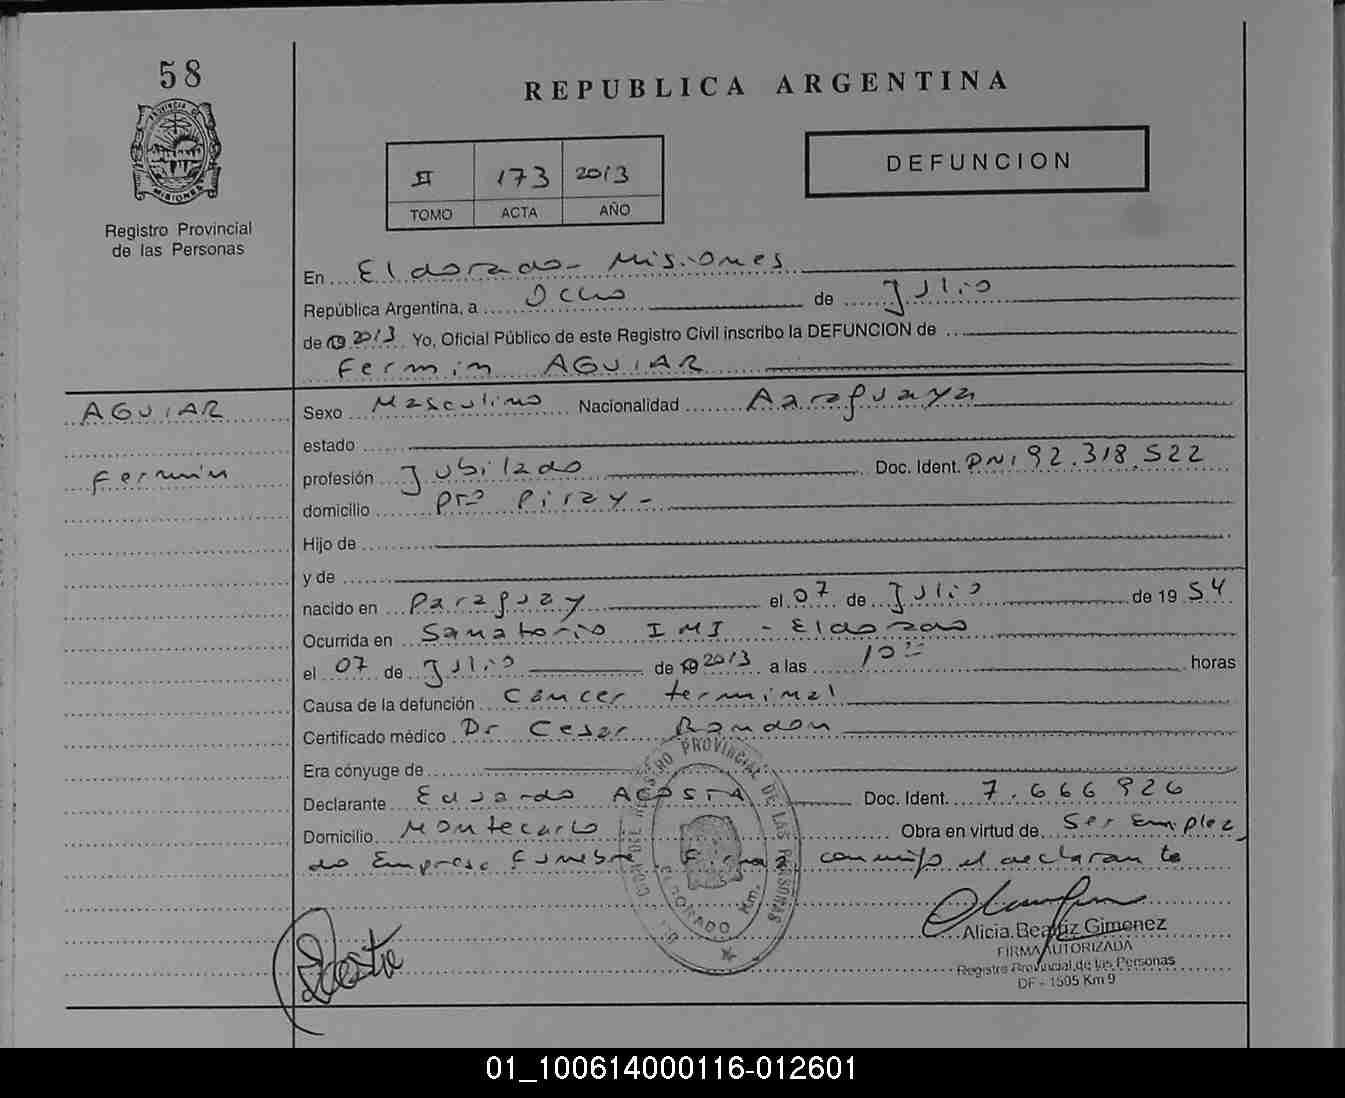 58
REPUBLICA ARGENTINA
PROVINCIA DE MISIONES
Registro Provincial
de las Personas
II 173 2013
TOMO ACTA AÑO
DEFUNCION
En Eldorado - Misiones
República Argentina, a Ocho de Julio
de 19 2013 Yo, Oficial Público de este Registro Civil inscribo la DEFUNCION de
Fermin AGUIAR
AGUIAR
Fermin
Sexo Masculino Nacionalidad
estado
profesión Jubilado Doc. Ident. DNI 92.318.522
domicilio Pto Piray -
Hijo de
y de
nacido en Paraguay el 07 de Julio de 19 54
Ocurrida en Sanatorio IMI - Eldorado
el 07 de Julio de 19 2013 a las 10 horas
Causa de la defunción Cáncer terminal
Certificado médico Dr Cesar
Era cónyuge de
Declarante Eduardo ACOSTA Doc. Ident. 7.666 926
Domicilio Montecarlo Obra en virtud de Ser Emplea
do Empresa Funebre Firma conmigo el declarante
REGISTRO PROVINCIAL DE LAS PERSONAS
ELDORADO Km.
Alicia Beatriz Gimenez
FIRMA AUTORIZADA
Registro Provincial de las Personas
DF - 1505 Km 9
01_100614000116-012601